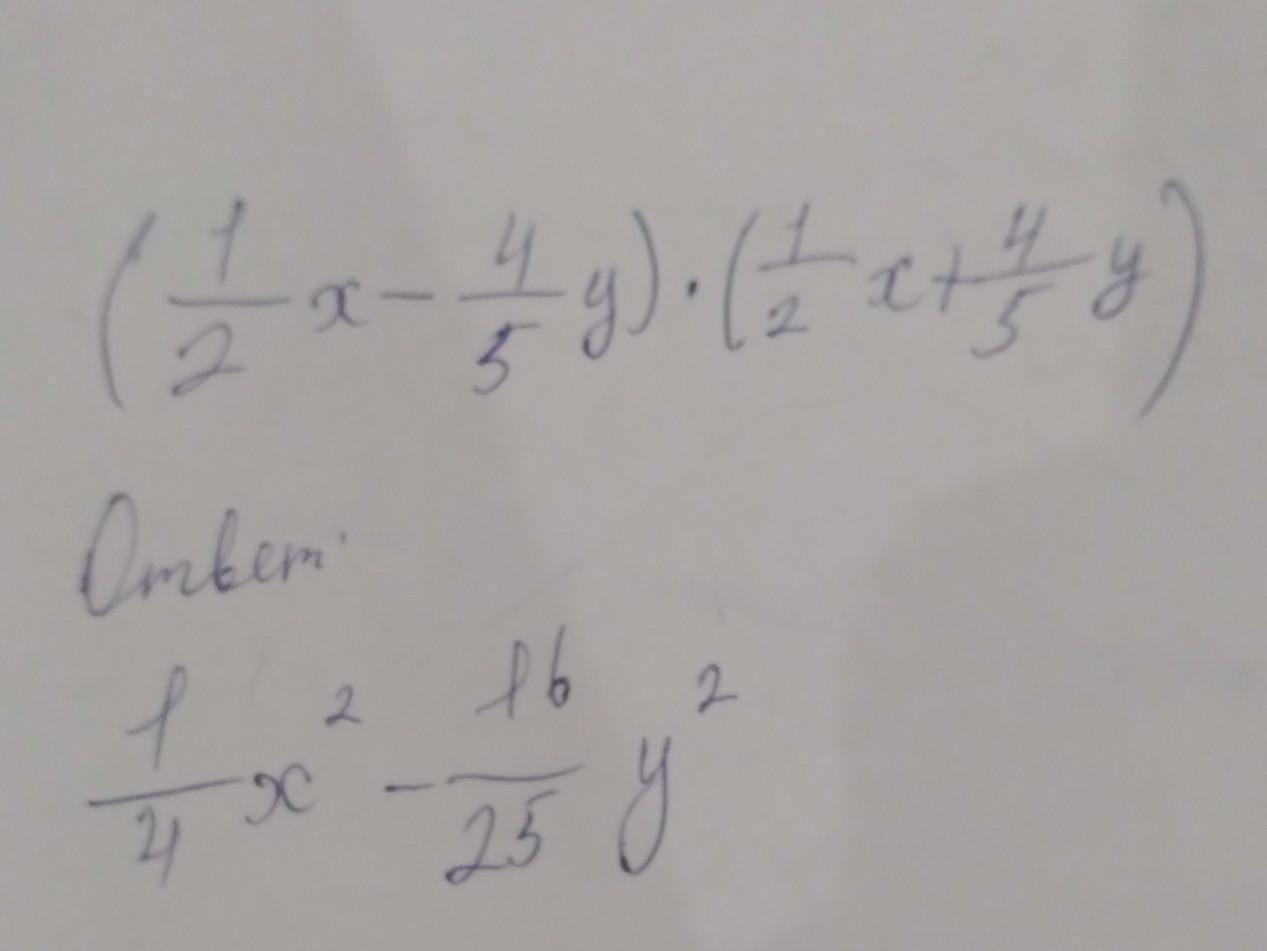 (1/2 x - 4/5 y) · (1/2 x + 4/5 y)
Ответ:
1/4 x² - 16/25 y²